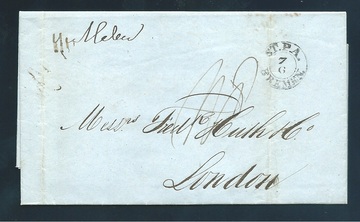 Helen
ST.P.A.
7
6
BREMEN.
Messrs Fredk Huth & Co
London